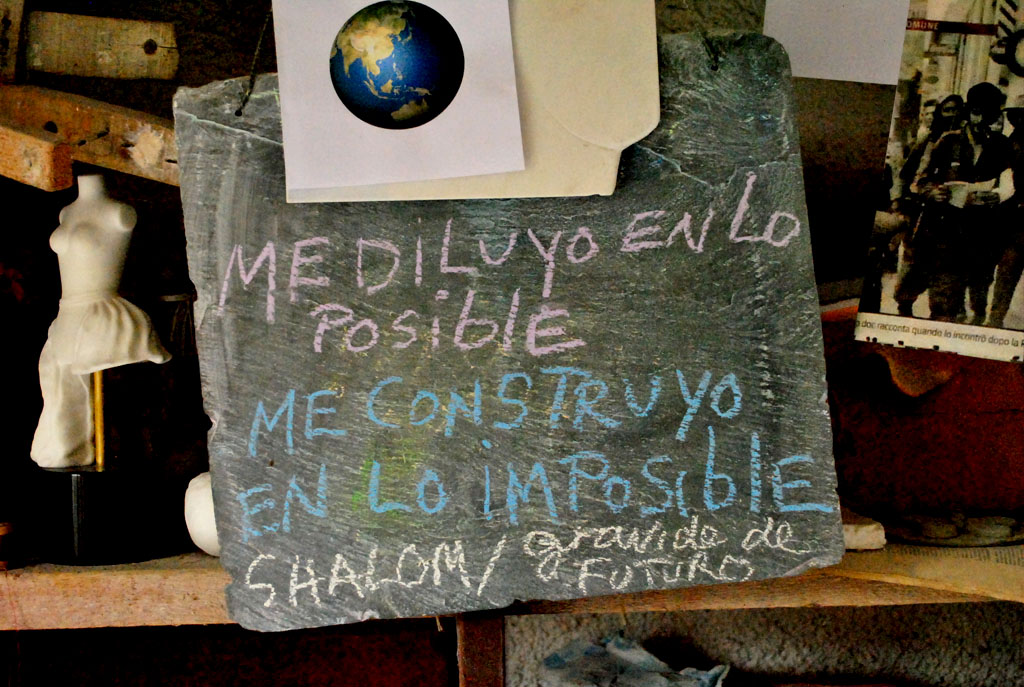 OMUNE
ME DILUYO EN LO
POSiblE
ME CONSTRUYO
EN LO iMPOSiblE
SHALOM/ gravido de
FUTURO
o doc racconta quando lo incontrò dopo la